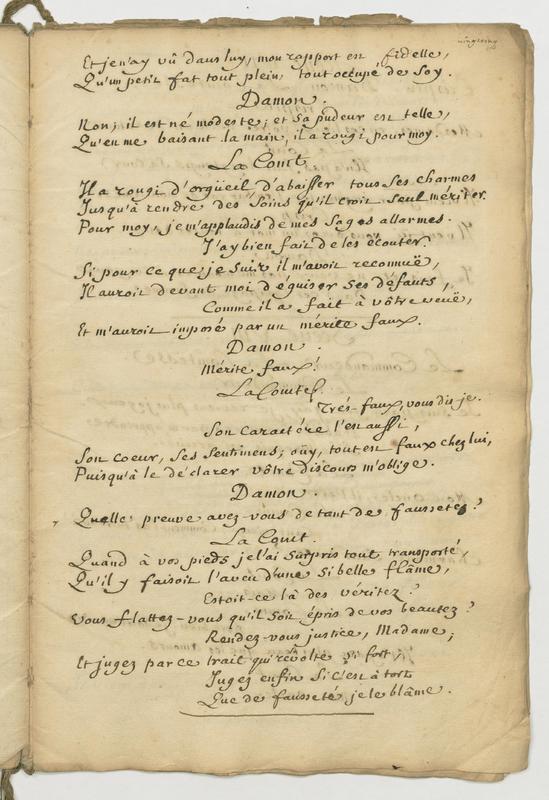 Et je n'ay vû dans luy, mon rapport est fidelle,
Qu'un petit fat tout plein, tout occupé de Soy.
Damon.
Non; il est né modeste; et Sa pudeur est telle,
Qu'en me baisant la main, il a rougi pour moy.
La Comt
Il a rougi d'orgüeil d'abaisser tous Ses charmes
Jusqu'à rendre des Soins qu'il croit Seul mériter.
Pour moy, je m'applaudis de mes Sages allarmes.
J'ay bien fait de les écouter.
Si pour ce que je Suis il m'avoit reconnuë,
Il auroit devant moi déguiser Ses défauts,
Comme il a fait à vôtre veuë,
Et m'auroit imposé par un mérite faux.
Damon.
Mérite faux!
La Comtess
Très-faux, vous dis je.
Son caractére l'est aussi,
Son coeur, Ses Sentimens; oüy, tout est faux chez lui,
Puisqu'à le déclarer vôtre discours m'oblige.
Damon.
Quelle preuve avez-vous de tant de faussetez?
La Comt.
Quand à vos pieds je l'ai Surpris tout transporté,
Qu'il y faisoit l'aveu d'une Si belle flâme,
Estoit-ce là des véritez?
Vous flattez-vous qu'il Soit épris de vos beautez?
Rendez-vous justice, Madame;
Et jugez par ce trait qui révolte Si fort;
Jugez enfin Si c'est à tort
Que de fausseté je le blâme.